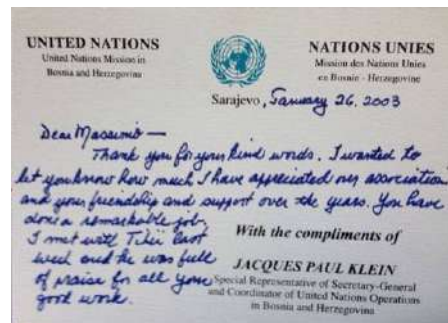 UNITED NATIONS
United Nations Mission in
Bosnia and Herzegovina
NATIONS UNIES
Mission des Nations Unies
en Bosnie - Herzegovine
Sarajevo, January 26, 2003
Dear Massimo —
Thank you for your kind words. I wanted to
let you know how much I have appreciated our association
and your friendship and support over the years. You have
done a remarkable job.
I met with last
week and he was full
of praise for all your
good work.
With the compliments of
JACQUES PAUL KLEIN
Special Representative of Secretary-General
and Coordinator of United Nations Operations
in Bosnia and Herzegovina